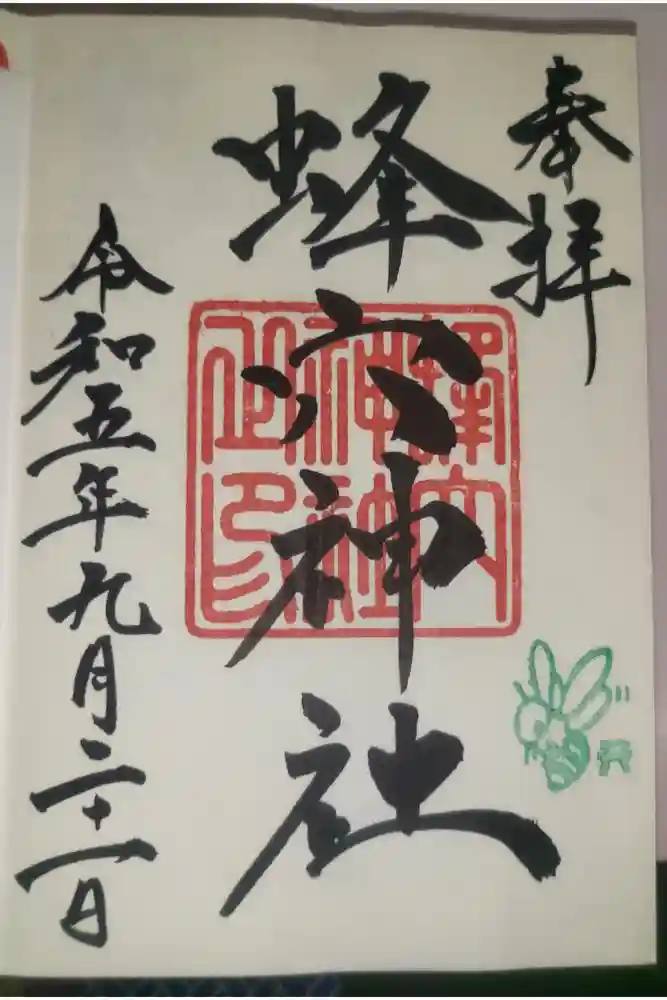 奉拝
蜂穴神社
蜂穴
神社
之印
令和五年九月二十一日